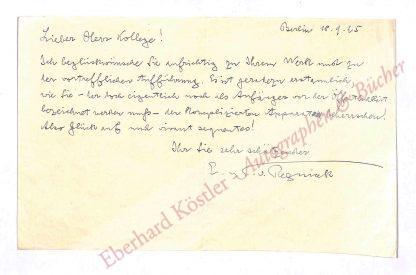 Berlin 18.9.25
Lieber Herr Kollege!
Ich beglückwünsche Sie aufrichtig zu Ihrem Werk und zu
der vortrefflichen Aufführung. Es ist geradezu erstaunlich,
wie Sie – der doch eigentlich noch als Anfänger vor der Öffentlichkeit
bezeichnet werden muß – den komplizierten Apparat beherrschen.
Also Glück auf und vivant sequentes!
Ihr Sie sehr schätzender
E. N. v. Reznicek
Eberhard Köstler Autographen & Bücher